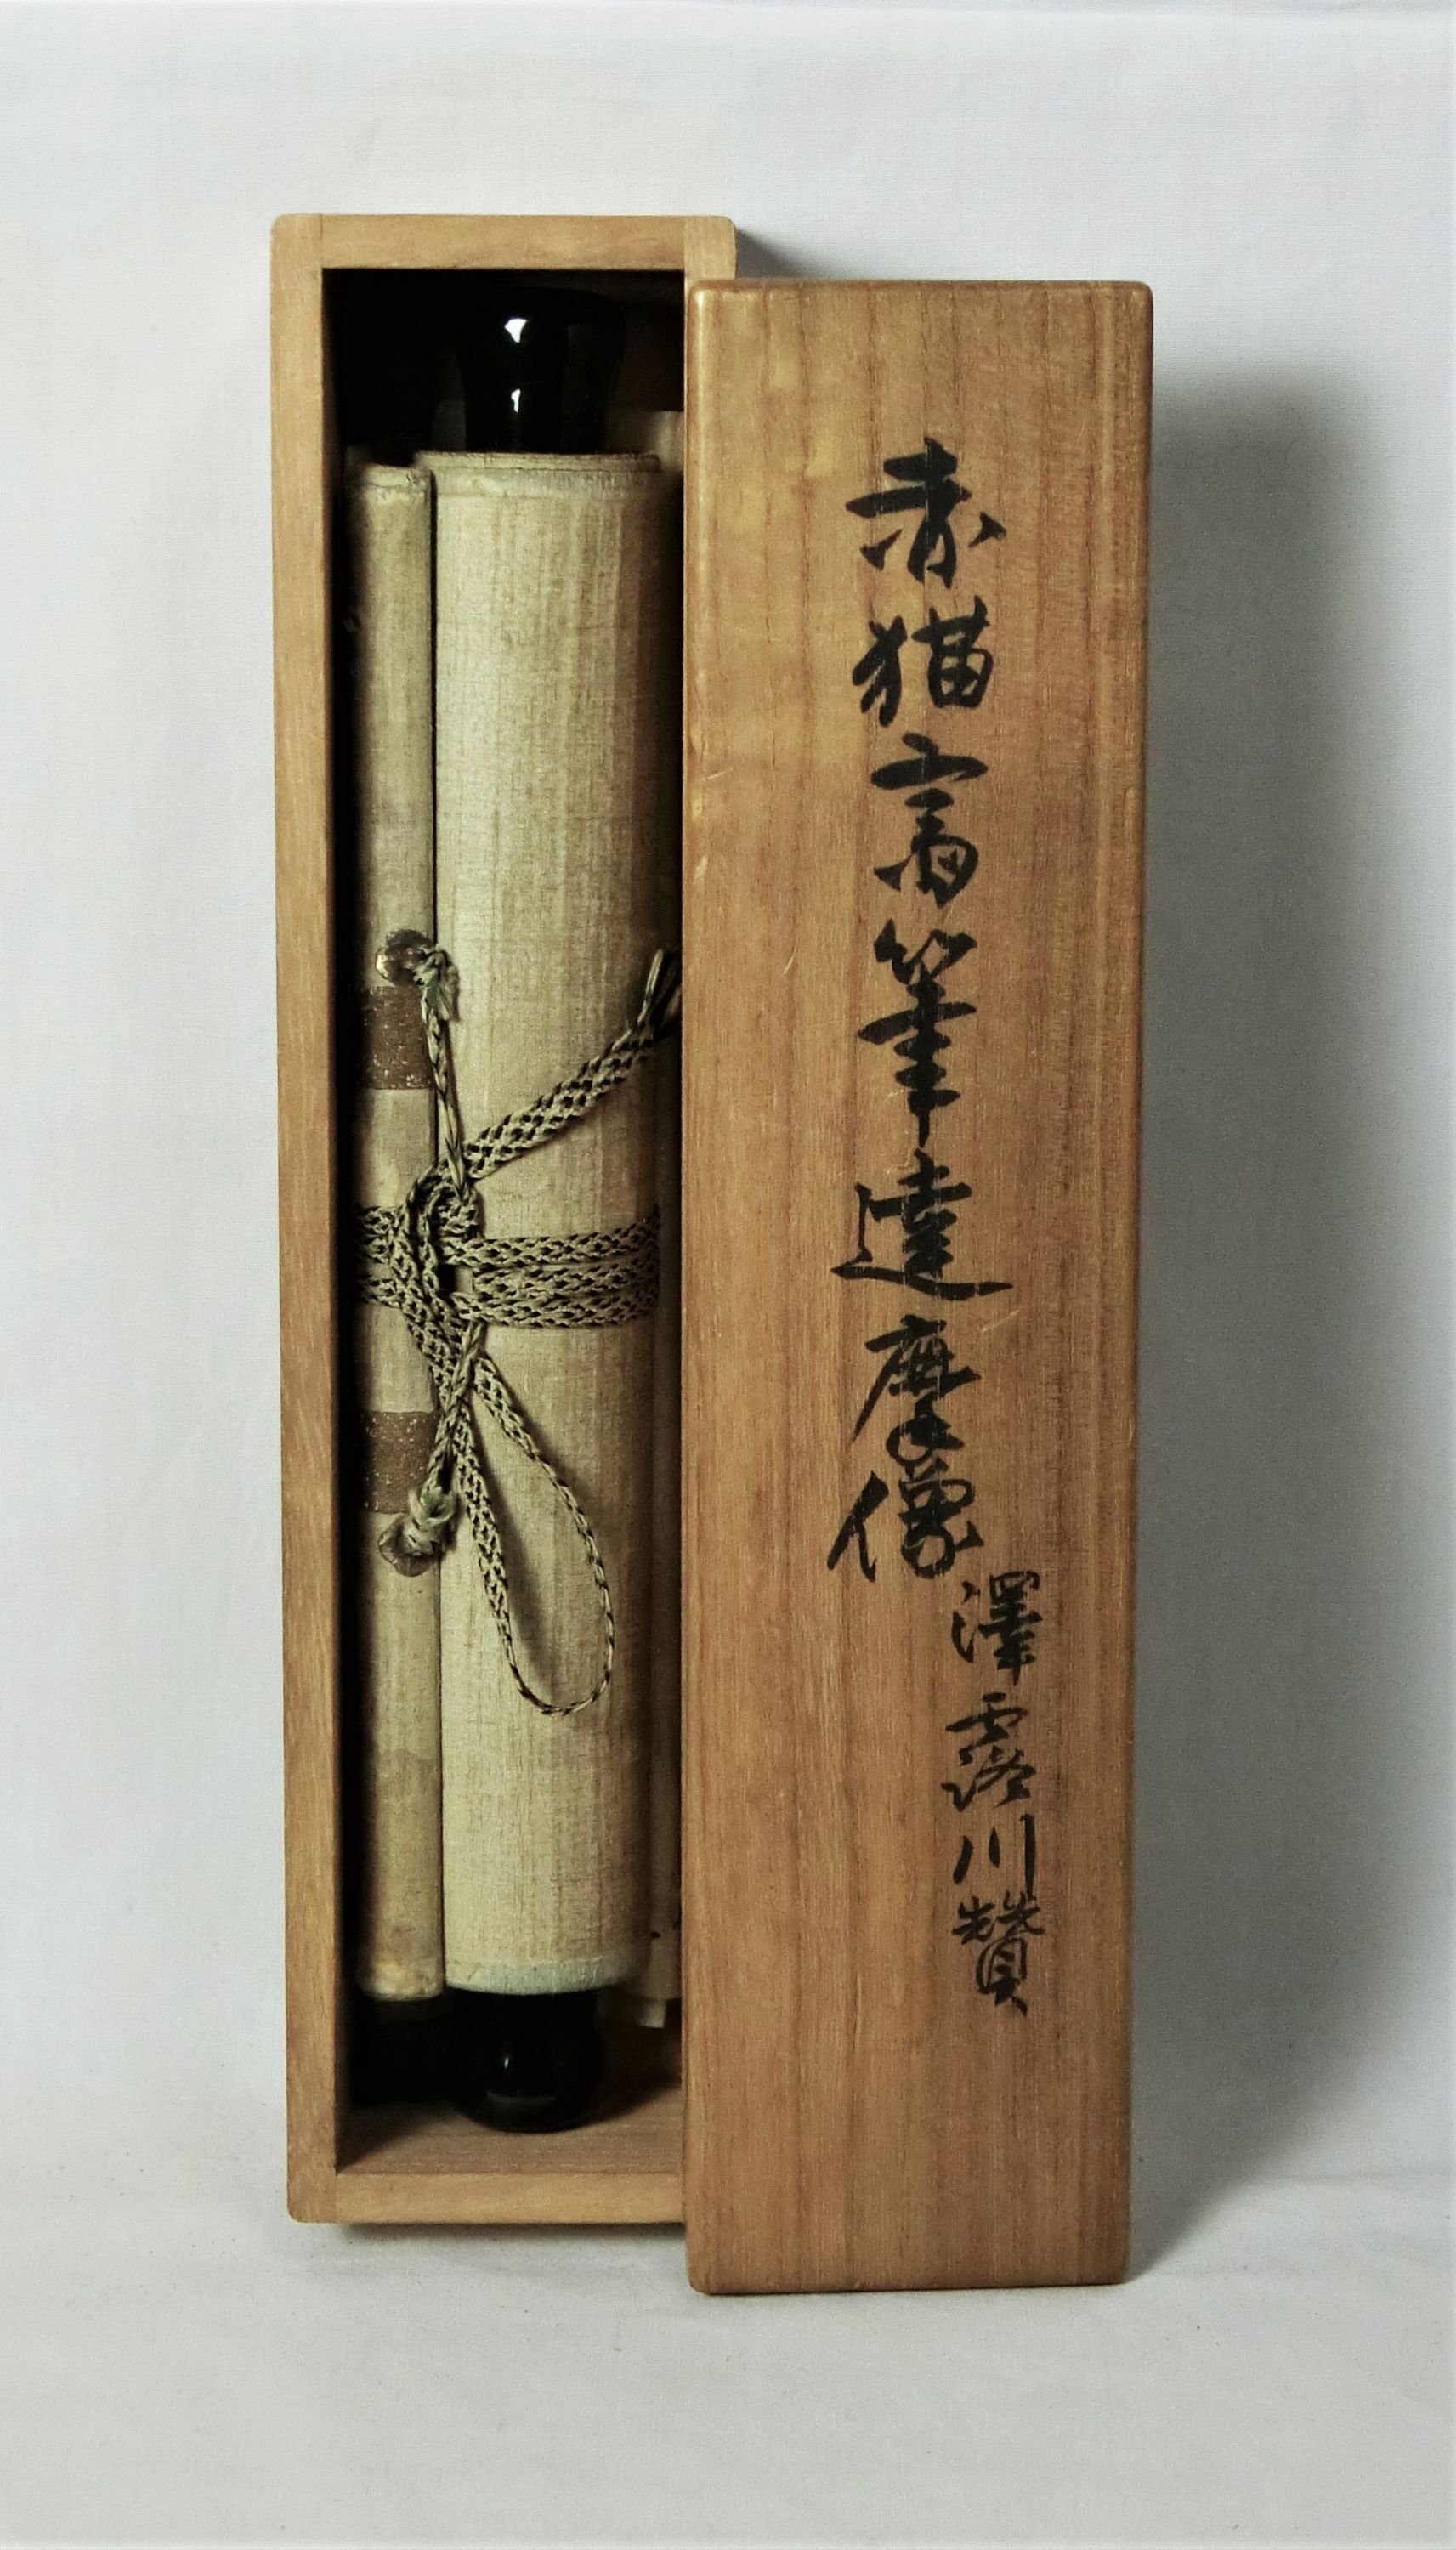 赤猫斎筆達摩像
澤露川賛